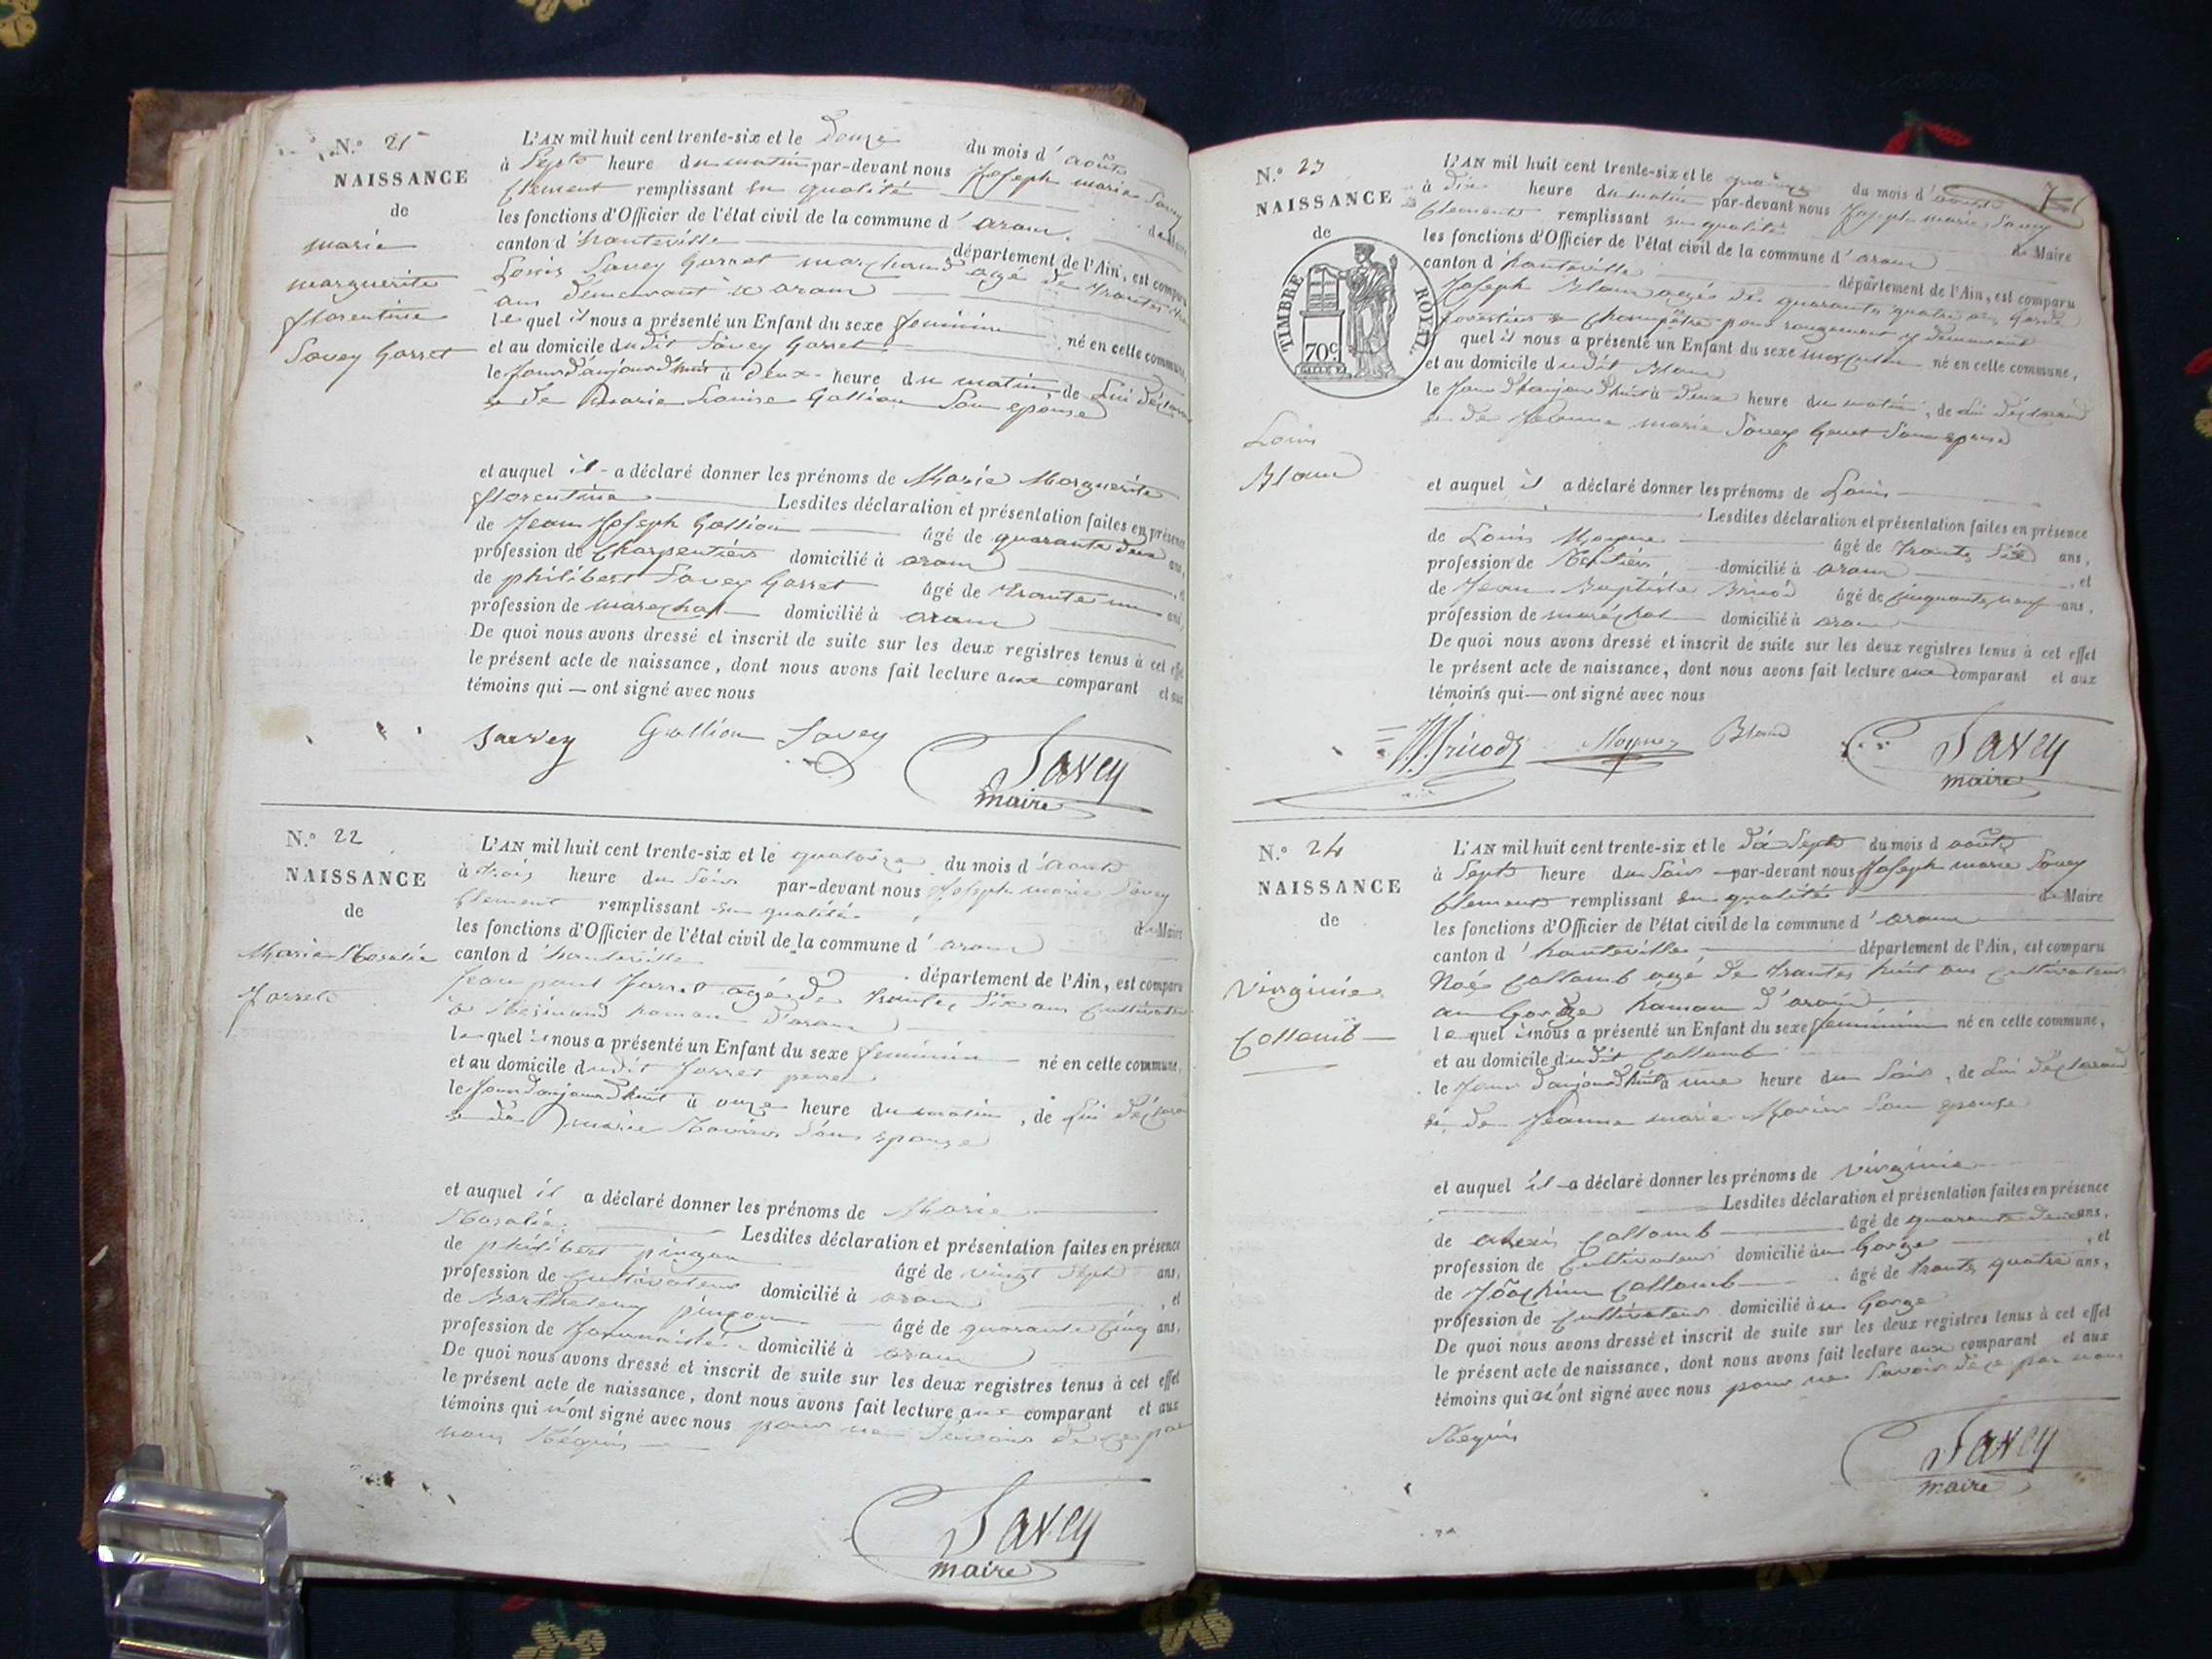 N.° 21
NAISSANCE
de
marie
marguerite
florentine
Savey Gorret
L'AN mil huit cent trente-six et le Douze du mois d'août
à Sept heure du matin par-devant nous Joseph marie Savey
Clement remplissant en qualité de Maire
les fonctions d'Officier de l'état civil de la commune d'aran
canton d'hauteville département de l'Ain, est comparu
Louis Savey Gorret marchand agé de trante
ans demeurant à aran
le quel il nous a présenté un Enfant du sexe feminin né en cette commune
et au domicile dudit Savey Gorret
le Jour d'aujourd'huit à deux heure du matin de Lui déclarant
et de Marie Louise Gallion Son épouse
et auquel il a déclaré donner les prénoms de Marie Marguerite
florentine Lesdites déclaration et présentation faites en présence
de Jean Joseph Gallion âgé de quarante deux ans,
profession de Charpentiers domicilié à aran , et
de philibert Savey Gorret âgé de trante un ans,
profession de marechal domicilié à aran
De quoi nous avons dressé et inscrit de suite sur les deux registres tenus à cet effet
le présent acte de naissance, dont nous avons fait lecture aux comparant et aux
témoins qui — ont signé avec nous
Savey Gallion Savey
Savey
maire
N.° 22
NAISSANCE
de
Marie Rosalie
Jorret
L'AN mil huit cent trente-six et le quatorze du mois d'aout
à trois heure du Soir par-devant nous Joseph marie Savey
Clement remplissant en qualité
les fonctions d'Officier de l'état civil de la commune d'aran de Maire
canton d'hauteville
département de l'Ain, est comparu
Jean paul Jorret agé de trante Six ans Cultivateur
à haman d'aran
le quel il nous a présenté un Enfant du sexe feminin né en cette commune,
et au domicile dudit Jorret pere
le Jour d'aujourd'huit à onze heure du matin, de Lui déclarant
et de marie Son epouse
et auquel il a déclaré donner les prénoms de Marie
Rosalie Lesdites déclaration et présentation faites en présence
de philibert pinzon âgé de vingt Sept ans,
profession de Cultivateur domicilié à aran , et
de Barthelemy pinzon âgé de quarante Cinq ans,
profession de domicilié à aran
De quoi nous avons dressé et inscrit de suite sur les deux registres tenus à cet effet
le présent acte de naissance, dont nous avons fait lecture aux comparant et aux
témoins qui n'ont signé avec nous pour ne Savoir de ce par
nous Réquis
Savey
maire
N.° 23
NAISSANCE
de
TIMBRE ROYAL.
70c
Louis
Blanc
L'AN mil huit cent trente-six et le quinze du mois d'aout
à dix heure du matin par-devant nous Joseph marie Savey
Clement remplissant en qualité de Maire
les fonctions d'Officier de l'état civil de la commune d'aran
canton d'hauteville département de l'Ain, est comparu
Joseph Blanc agée de quarante quatre ans Garde
forestier Champêtre pour y demeurant
quel il nous a présenté un Enfant du sexe masculin né en cette commune,
et au domicile dudit Blanc
le Jour d'haujourd'huit à deux heure du matin, de Lui déclarant
et de marie Savey Gorret Son epouse
et auquel il a déclaré donner les prénoms de Louis
Lesdites déclaration et présentation faites en présence
de Louis âgé de trante Six ans,
profession de Rentiers domicilié à aran , et
de Jean Baptiste Bricod âgé de Cinquante neuf ans,
profession de maréchal domicilié à aran
De quoi nous avons dressé et inscrit de suite sur les deux registres tenus à cet effet
le présent acte de naissance, dont nous avons fait lecture aux comparant et aux
témoins qui — ont signé avec nous
Bricod Blanc Savey
maire
N.° 24
NAISSANCE
de
Virginie
Collomb
L'AN mil huit cent trente-six et le dix Sept du mois d août
à Sept heure du Soir par-devant nous Joseph marie Savey
Clement remplissant en qualité de Maire
les fonctions d'Officier de l'état civil de la commune d'aran
canton d'hauteville département de l'Ain, est comparu
Noé Collomb agé de trante huit ans Cultivateur
au Gorge haman d'aran
le quel il nous a présenté un Enfant du sexe feminin né en cette commune,
et au domicile dudit Collomb
le Jour d'aujourd'huit à une heure du Soir, de Lui déclarant
et de Jeanne marie Son epouse
et auquel il a déclaré donner les prénoms de Virginie
Lesdites déclaration et présentation faites en présence
de alexis Collomb âgé de quarante deux ans,
profession de Cultivateur domicilié au Gorge , et
de Jôachim Collomb âgé de trante quatre ans,
profession de Cultivateur domicilié au Gorge
De quoi nous avons dressé et inscrit de suite sur les deux registres tenus à cet effet
le présent acte de naissance, dont nous avons fait lecture aux comparant et aux
témoins qui n'ont signé avec nous pour ne Savoir de ce par nous
Requis
Savey
maire